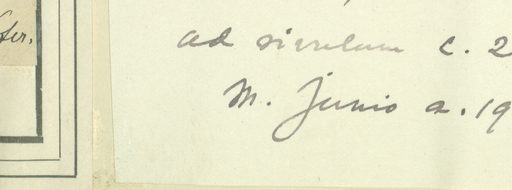 ter.
ad rivulum c. 2
m. Junio a. 19